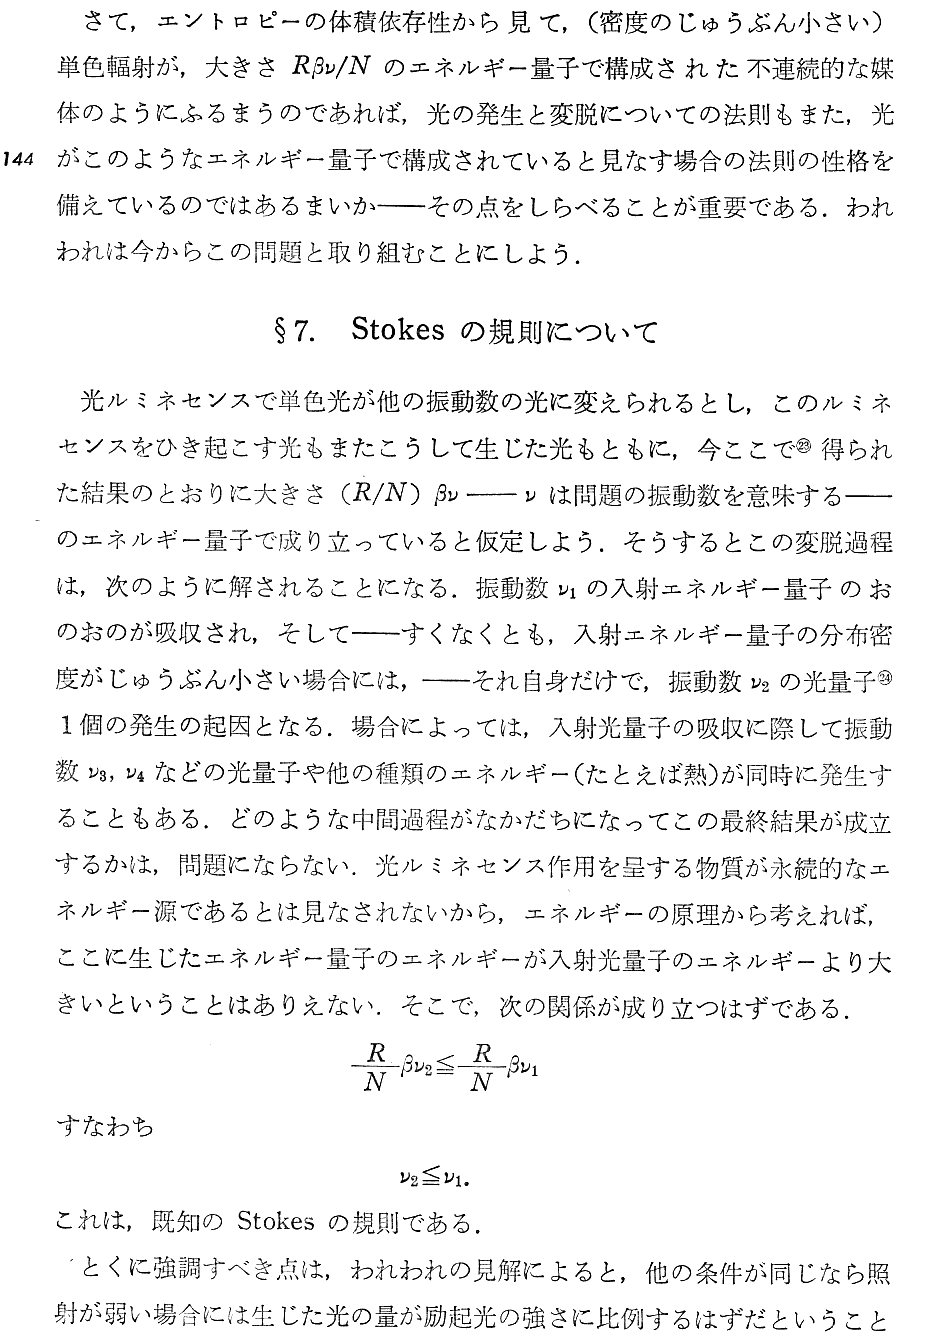 さて，エントロピーの体積依存性から見て，（密度のじゅうぶん小さい）
単色輻射が，大きさ Rβν/N のエネルギー量子で構成された不連続的な媒
体のようにふるまうのであれば，光の発生と変脱についての法則もまた，光
144 がこのようなエネルギー量子で構成されていると見なす場合の法則の性格を
備えているのではあるまいか——その点をしらべることが重要である．われ
われは今からこの問題と取り組むことにしよう．
§7. Stokes の規則について
光ルミネセンスで単色光が他の振動数の光に変えられるとし，このルミネ
センスをひき起こす光もまたこうして生じた光もともに，今ここで㉓ 得られ
た結果のとおりに大きさ（R/N）βν —— ν は問題の振動数を意味する——
のエネルギー量子で成り立っていると仮定しよう．そうするとこの変脱過程
は，次のように解されることになる．振動数 ν₁ の入射エネルギー量子のお
のおのが吸収され，そして——すくなくとも，入射エネルギー量子の分布密
度がじゅうぶん小さい場合には，——それ自身だけで，振動数 ν₂ の光量子㉔
1個の発生の起因となる．場合によっては，入射光量子の吸収に際して振動
数 ν₃，ν₄ などの光量子や他の種類のエネルギー(たとえば熱)が同時に発生す
ることもある．どのような中間過程がなかだちになってこの最終結果が成立
するかは，問題にならない．光ルミネセンス作用を呈する物質が永続的なエ
ネルギー源であるとは見なされないから，エネルギーの原理から考えれば，
ここに生じたエネルギー量子のエネルギーが入射光量子のエネルギーより大
きいということはありえない．そこで，次の関係が成り立つはずである．
R/N βν₂≦R/N βν₁
すなわち
ν₂≦ν₁.
これは，既知の Stokes の規則である．
とくに強調すべき点は，われわれの見解によると，他の条件が同じなら照
射が弱い場合には生じた光の量が励起光の強さに比例するはずだということ